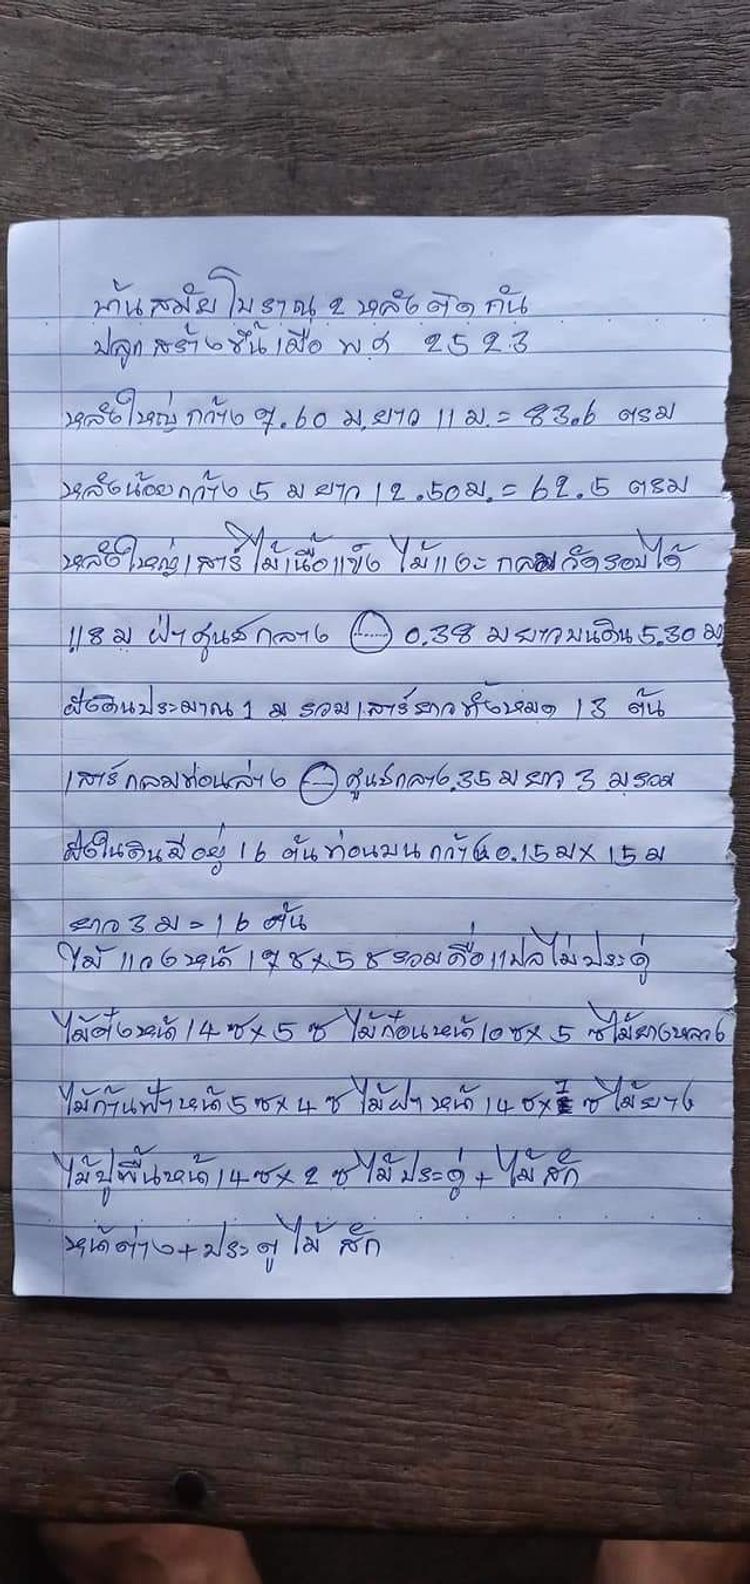 บ้านสมัยโบราณ 2 หลังติดกัน
ปลูกสร้างขึ้นเมื่อ พ ศ 2523
หลังใหญ่ กว้าง 7.60 ม. ยาว 11 ม. = 83.6 ตรม
หลังน้อยกว้าง 5 ม ยาว 12.50 ม. = 62.5 ตรม
หลังใหญ่ เสาร์ ไม้เนื้อแข็ง ไม้แงะ กลม วัดรอบได้
118 ม ผ่าศูนย์กลาง 0.38 ม ยาวบนดิน 5.30 ม
ฝังดินประมาณ 1 ม รวมเสาร์ยาวทั้งหมด 13 ต้น
เสาร์กลมท่อนล่าง ศูนย์กลาง.35 ม ยาว 3 ม รวม
ฝังในดินมีอยู่ 16 ต้น ท่อนบน กว้าง 0.15 ม x 15 ม
ยาว 3 ม = 16 ต้น
ไม้ หน้า 17 ซ x 5 ซ รวม แปลไม้ประดู่
ไม้ตงหน้า 14 ซ x 5 ซ ไม้ก๊อนหน้า 10 ซ x 5 ซ ไม้ยางหลวง
ไม้ก้านฟ้าหน้า 5 ซ x 4 ซ ไม้ฝา หน้า 14 ซ x 1 ซ ไม้ยาง
ไม้ปูพื้นหน้า 14 ซ x 2 ซ ไม้ประดู่ + ไม้สัก
หน้าต่าง + ประตู ไม้ สัก